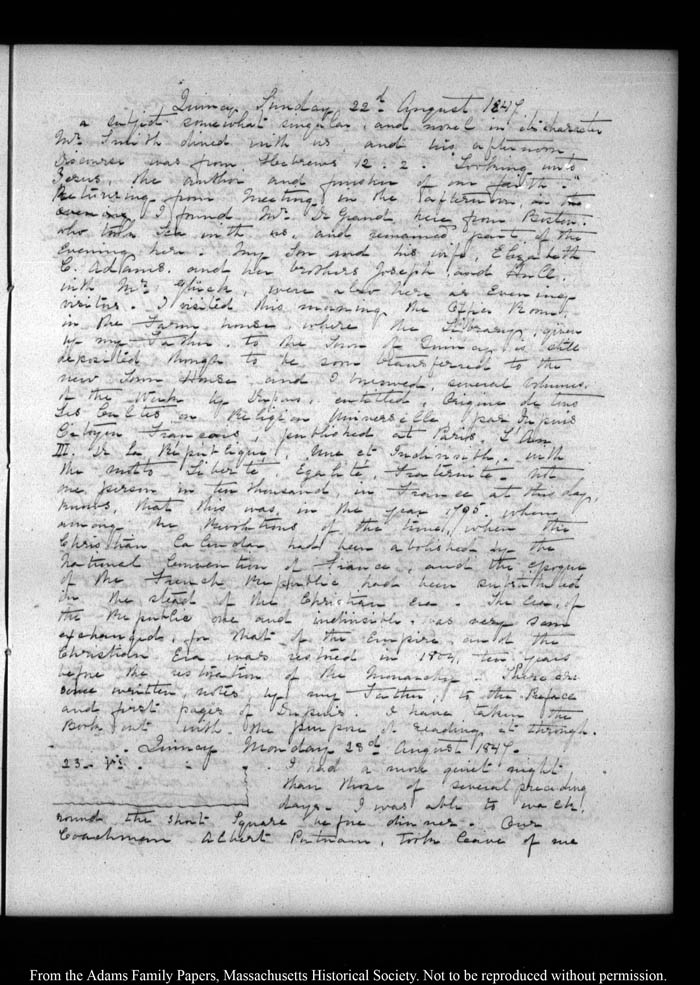 Quincy Sunday 22d August 1847
a subject somewhat singular, and novel in its character
Mr. Smith dined with us, and his afternoon
discourse was from Hebrews 12. 2. "Looking unto
Jesus, the author and finisher of our faith."
Returning from Meeting in the afternoon, in the
evening I found Mr. De Grand here from Boston.
who took Tea with us, and remained part of the
Evening here. My Son and his wife, Elizabeth
C. Adams. and her brothers Joseph and
with Mr. were also here as Evening
visitors. I visited this morning the Upper Room,
in the Farm house where the Library, given
by my Father. to the Town of Quincy, is still
deposited though to be soon transferred to the
new Town House and I several volumes.
of the Work by Dupuis, entitled, Origine de tous
Les Cultes ou Religion Universelle, par Dupuis
Citoyen Francois, published at Paris. L'An
III. de la Republique, Une et Indivisible. with
the motto Liberté, Egalité, Fraternité. Not
one person in ten thousand, in France at this day,
knows, that this was, in the year 1795. when
among the Revolutions of the time, when the
Christian Calendar had been abolished by the
National Convention of France, and the Epoque
of the French Republic had been substituted
in the stead of the Christian era. The Era, of
the Republic one and indivisible. was very soon
exchanged, for that of the Empire, and the
Christian Era was restored in 1804, ten years
before the restoration of the Monarchy. There are
some written notes by my Father, to the Preface
and first pages of Dupuis. I have taken the
Book out with the purpose of reading it through.
Quincy Monday 23d August 1847.
23. I had a more quiet night
than those of several preceding
days. I was able to walk
round the short Square before dinner. Our
Coachman Albert Putnam, took leave of me
From the Adams Family Papers, Massachusetts Historical Society. Not to be reproduced without permission.